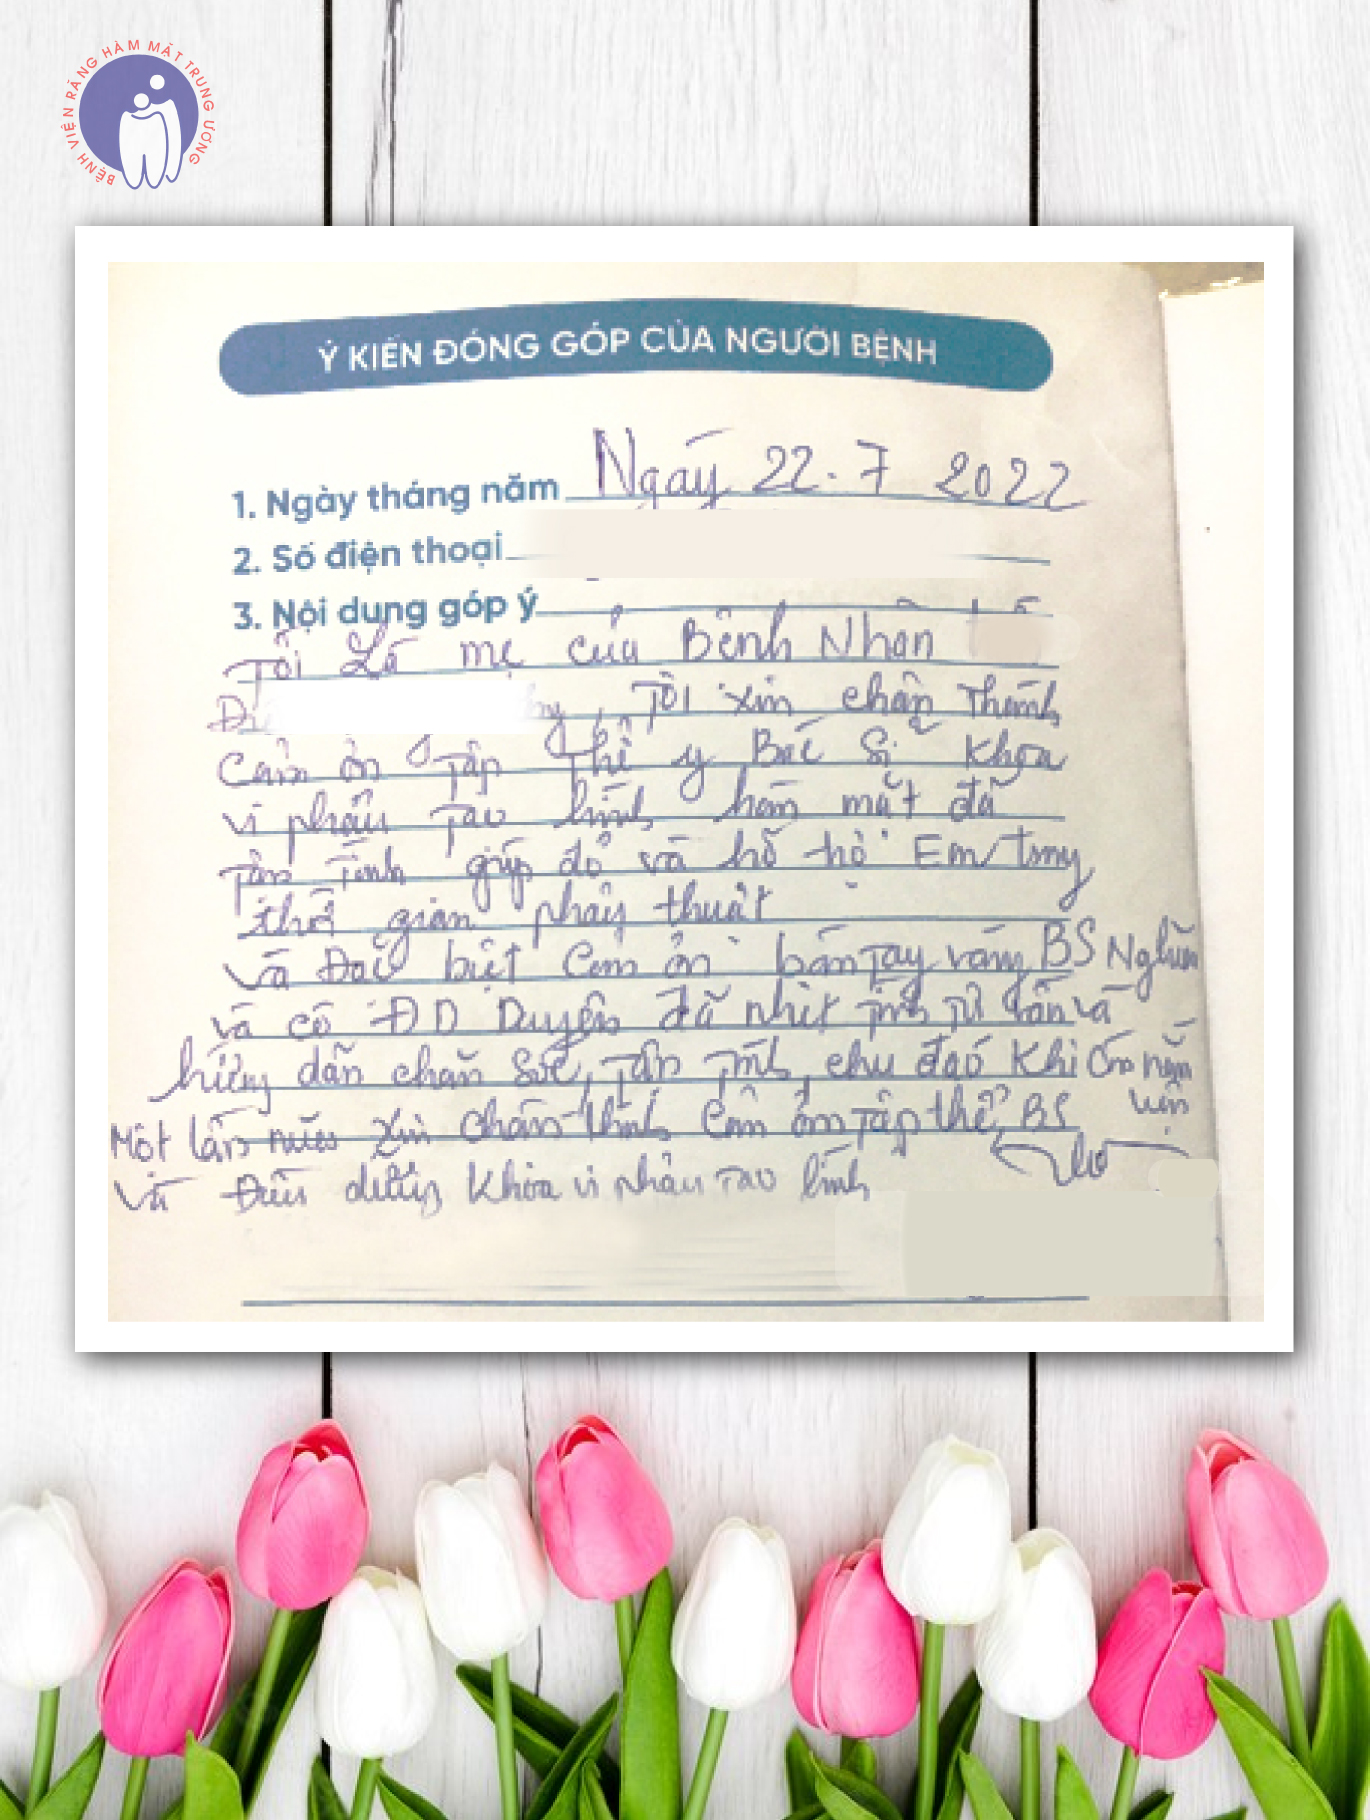 BỆNH VIỆN RĂNG HÀM MẶT TRUNG ƯƠNG
Ý KIẾN ĐÓNG GÓP CỦA NGƯỜI BỆNH
1. Ngày tháng năm Ngáy 22.7 2022
2. Số điện thoại
3. Nội dung góp ý
Tôi Là mẹ của Bênh Nhân
Tôi xin chân thành
Cảm ơn Tập Thể y Bác Sĩ Khoa
vi phẫu Tạo hình hàm mặt đã
Tận Tình giúp đỡ và hỗ trợ Em trong
thời gian phẫu thuật
và Đặc biệt Cảm ơn bàn Tay vàng BS
và cô ĐD Duyên đã nhiệt tình tư vấn và
hướng dẫn chăm sóc, Tận Tình, chu đáo Khi Con nằm
viện
Một lần nữa xin chân thành Cảm ơn Tập thể BS
và Điều dưỡng Khoa vi phẫu Tạo hình